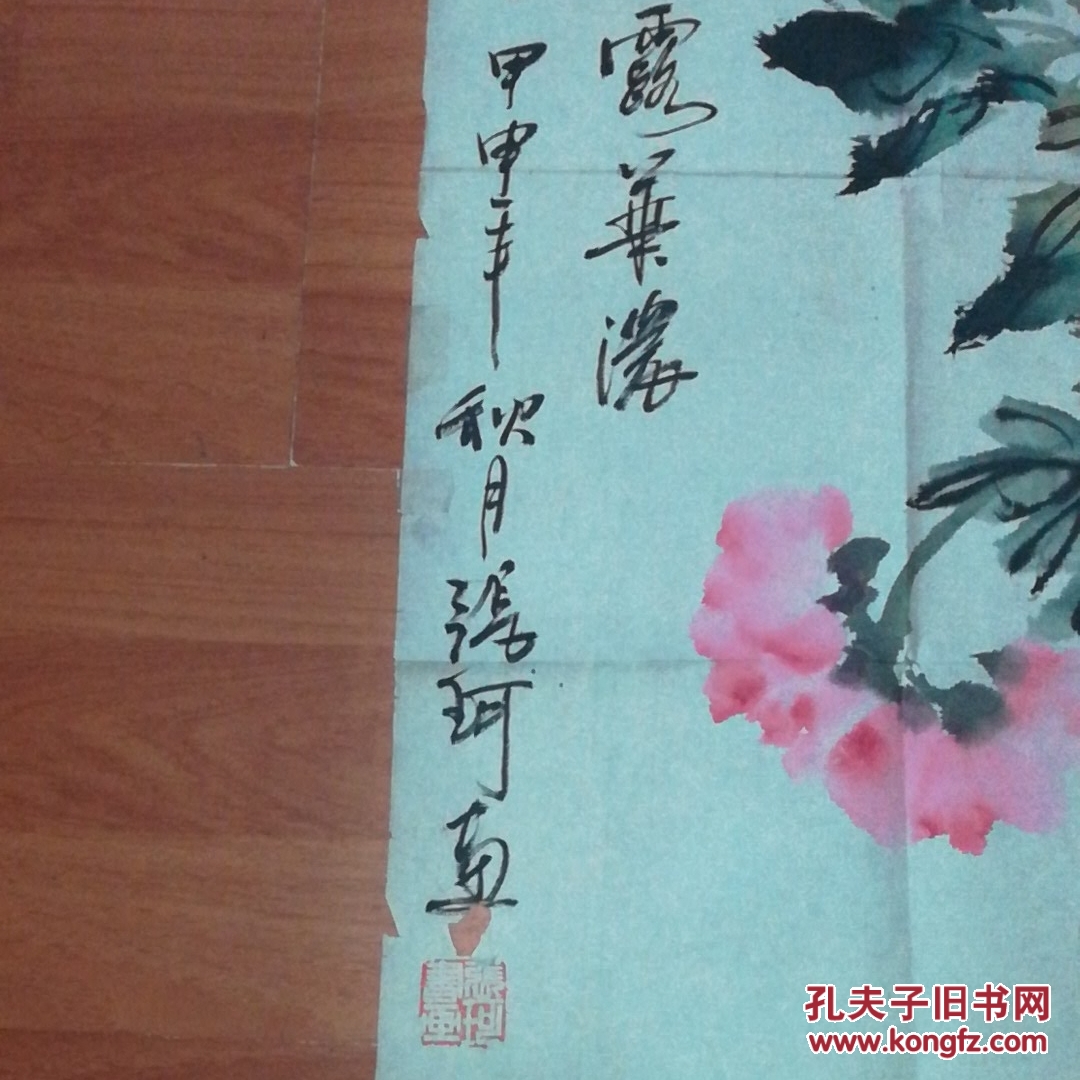 露華濃
甲申年秋月張珂畫
孔夫子旧书网
www.kongfz.com